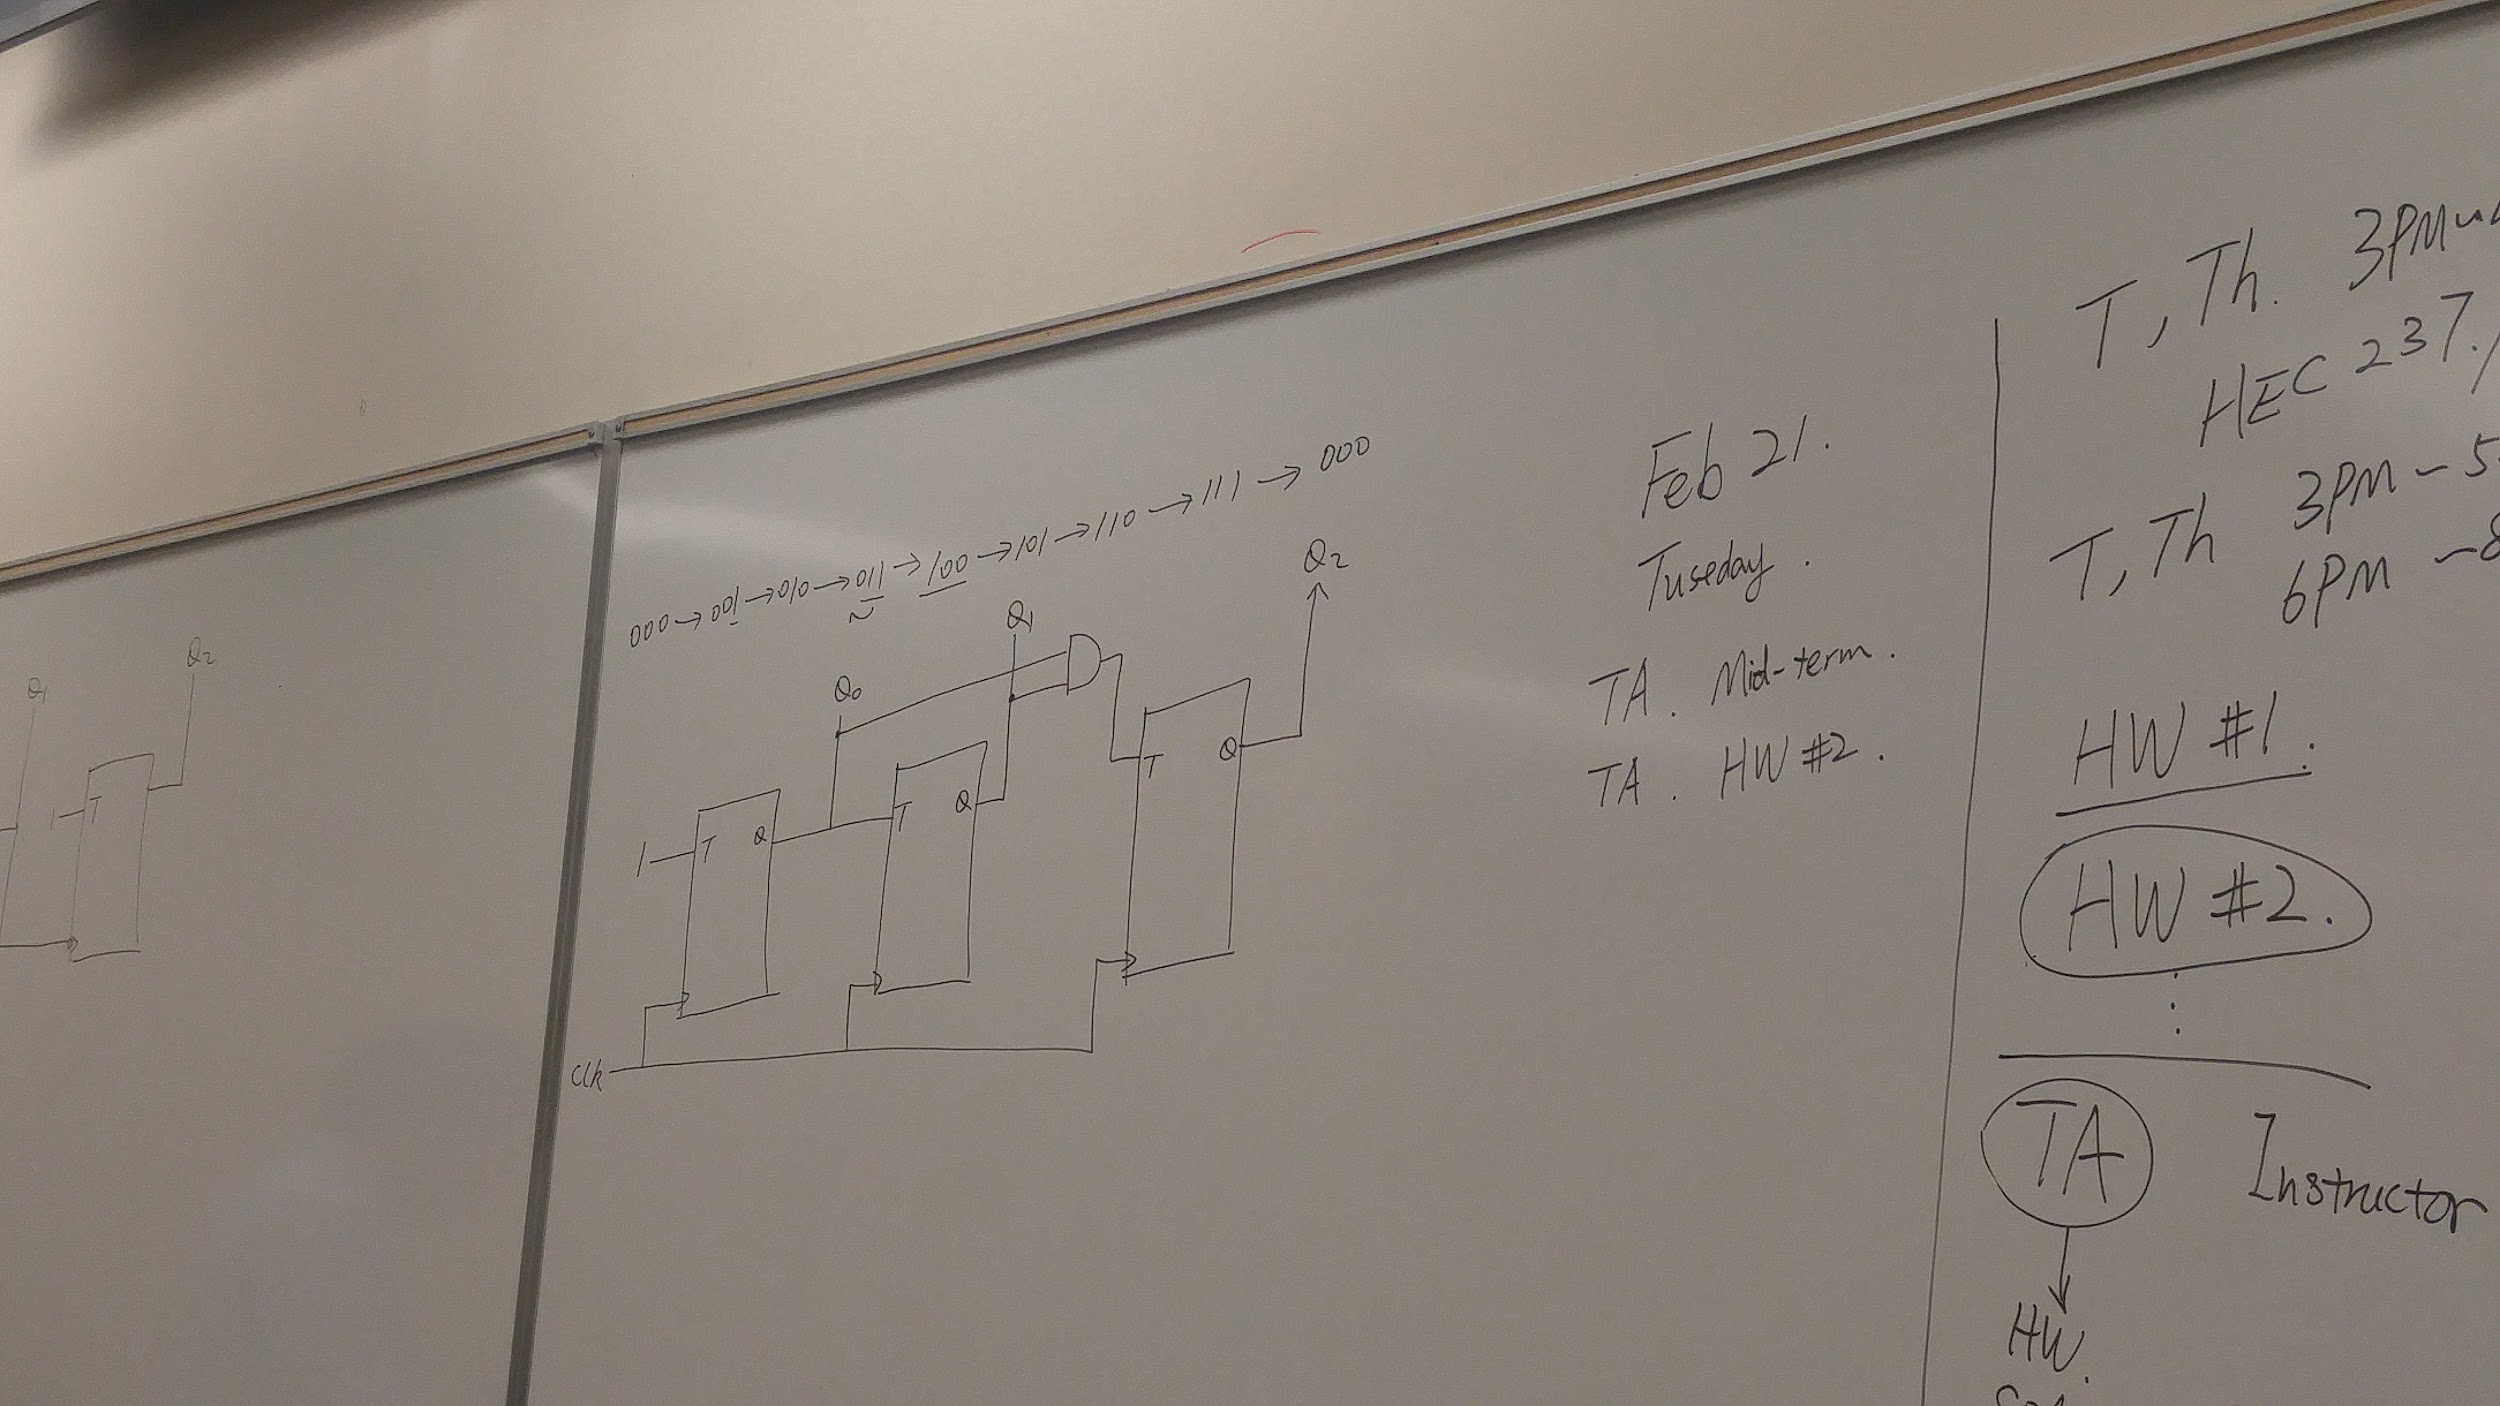 Q1
Q2
1
T
000 → 001 → 010 → 011 → 100 → 101 → 110 → 111 → 000
Q0
Q1
Q2
1
T
Q
T
Q
T
Q
Clk
Feb 21.
Tuseday.
TA. Mid-term.
TA. HW #2.
T, Th. 3PM
HEC 237.
T, Th 3PM - 5
6PM - 8
HW #1.
HW #2.
TA Instructor
HW.